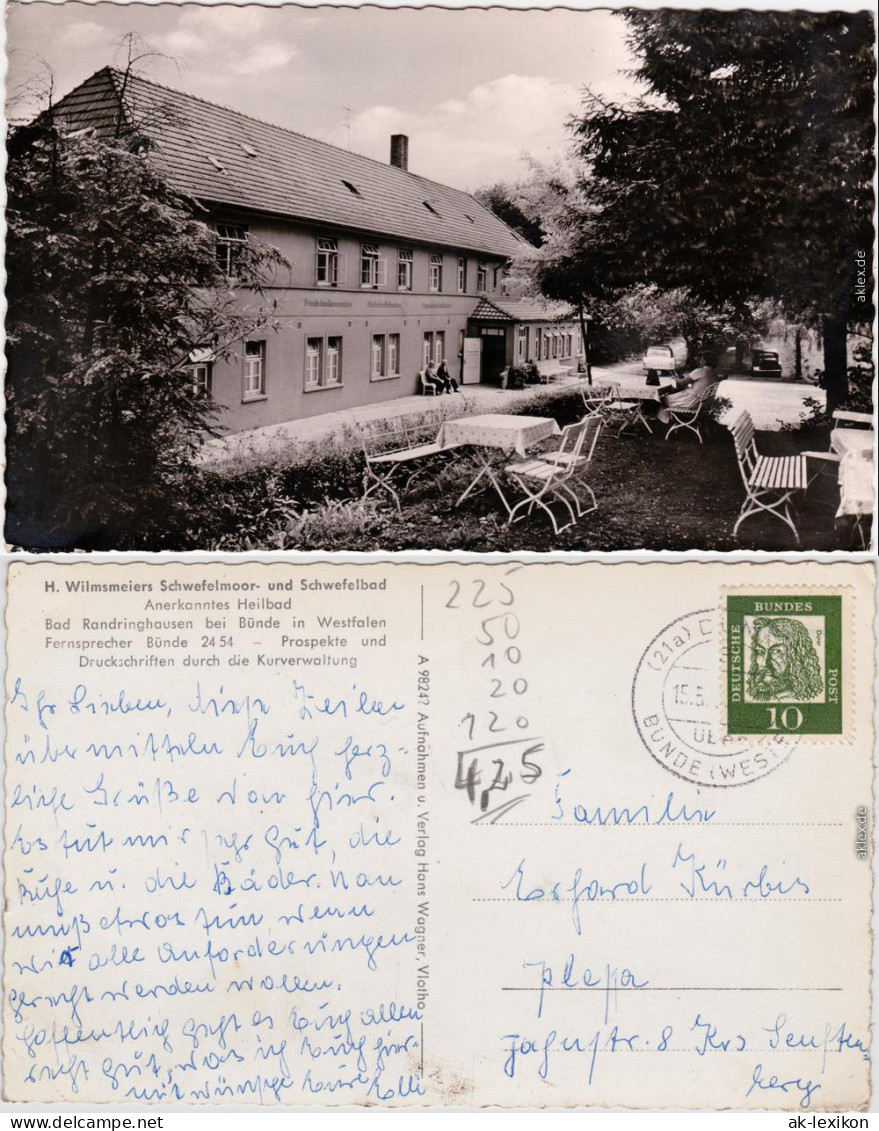 aklexikon.de
H. Wilmsmeiers Schwefelmoor- und Schwefelbad
Anerkanntes Heilbad
Bad Randringhausen bei Bünde in Westfalen
Fernsprecher Bünde 24 54 – Prospekte und
Druckschriften durch die Kurverwaltung
Ihr Lieben, diese Zeilen
übermitteln Euch herz-
liche Grüße von hier.
Es tut mir sehr gut, die
Ruhe u. die Bäder. Man
muß etwas tun, wenn
wir alle Anforderungen
gerecht werden wollen.
Hoffentlich geht es Euch allen
recht gut, was ich Euch hier-
mit wünsche Eure Elli
A 98247 Aufnahmen u. Verlag Hans Wagner, Vlotho
225
50
10
20
120
4,25
(21a)
15.5.
BÜNDE (WESTF)
DEUTSCHE BUNDES POST
Dürer
10
Familie
Erhard Kürbis
Plessa
Jahnstr. 8 Krs Senften
berg
aklexikon.de
www.ak-lexikon.de